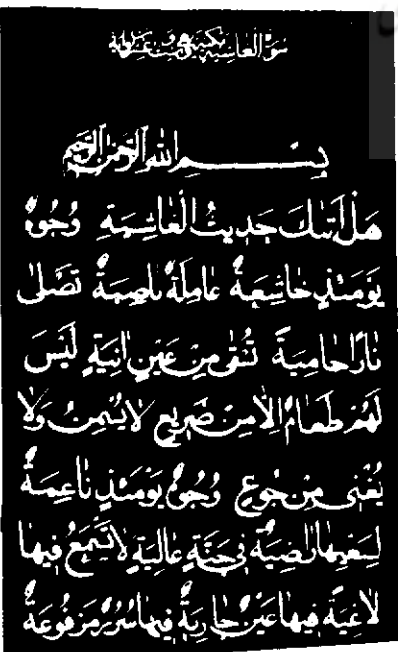 سورة الغاشية مكية
بسم الله الرحمن الرحيم
هَلْ اَتٰىكَ حَدِيثُ الْغَاشِيَةِ وُجُوهٌ
يَوْمَئِذٍ خَاشِعَةٌ عَامِلَةٌ نَاصِبَةٌ تَصْلٰى
نَارًا حَامِيَةً تُسْقٰى مِنْ عَيْنٍ اٰنِيَةٍ لَيْسَ
لَهُمْ طَعَامٌ اِلَّا مِنْ ضَرِيعٍ لَا يُسْمِنُ وَلَا
يُغْنِى مِنْ جُوعٍ وُجُوهٌ يَوْمَئِذٍ نَاعِمَةٌ
لِسَعْيِهَا رَاضِيَةٌ فِى جَنَّةٍ عَالِيَةٍ لَا تَسْمَعُ فِيهَا
لَاغِيَةً فِيهَا عَيْنٌ جَارِيَةٌ فِيهَا سُرُرٌ مَرْفُوعَةٌ